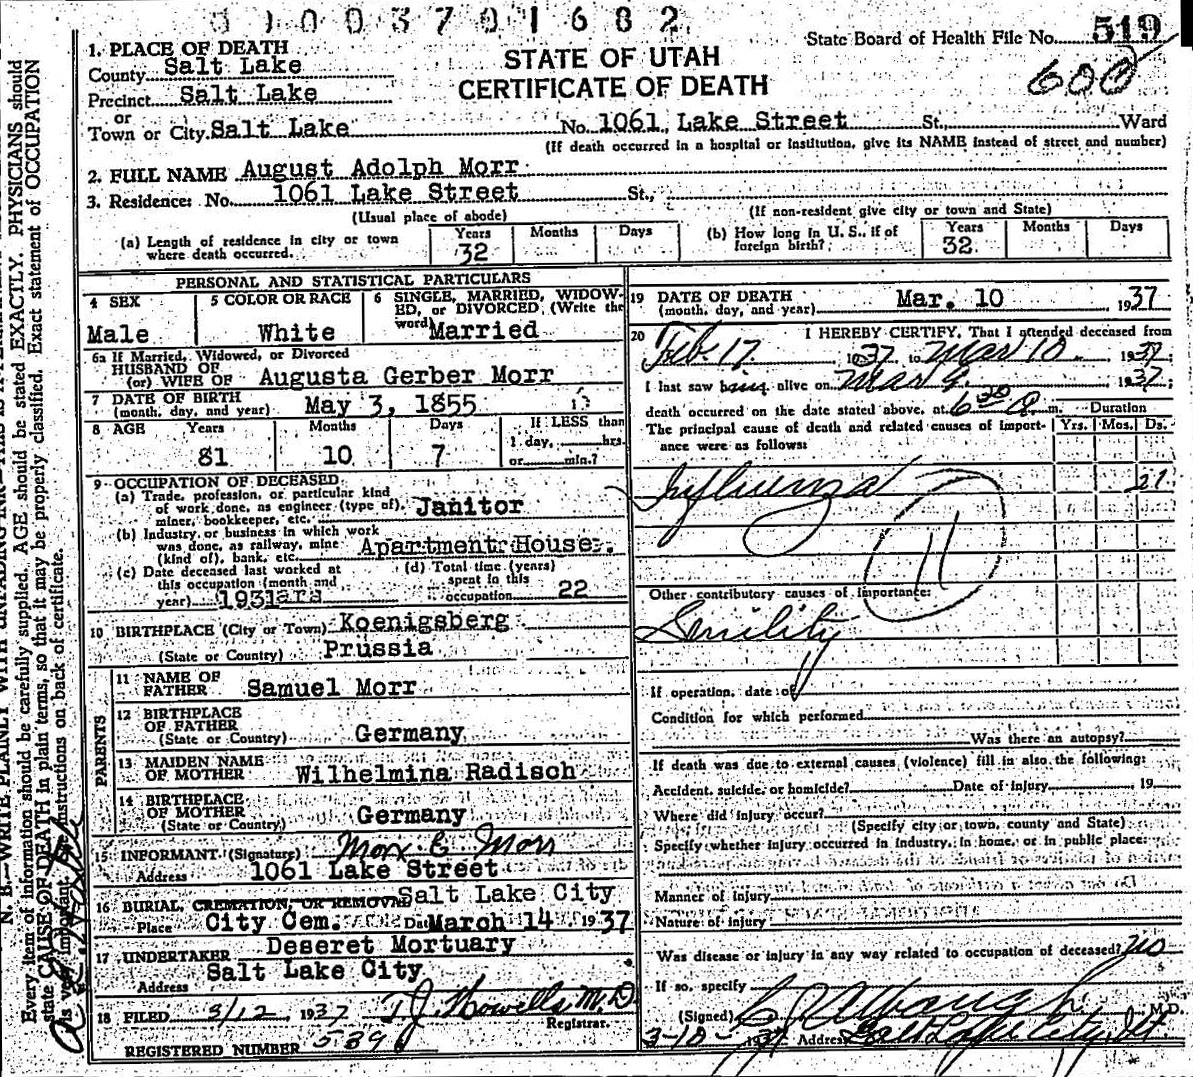 01003701682
State Board of Health File No. 519
600
STATE OF UTAH
CERTIFICATE OF DEATH
1. PLACE OF DEATH
County Salt Lake
Precinct Salt Lake
or
Town or City Salt Lake No. 1061 Lake Street St., Ward
(If death occurred in a hospital or institution, give its NAME instead of street and number)
2. FULL NAME August Adolph Morr
3. Residence: No. 1061 Lake Street St.,
(Usual place of abode) (If non-resident give city or town and State)
(a) Length of residence in city or town where death occurred. Years 32 Months Days
(b) How long in U. S., if of foreign birth? Years 32 Months Days
PERSONAL AND STATISTICAL PARTICULARS
4 SEX Male
5 COLOR OR RACE White
6 SINGLE, MARRIED, WIDOWED, or DIVORCED (Write the word) Married
6a If Married, Widowed, or Divorced
HUSBAND OF
(or) WIFE OF Augusta Gerber Morr
7 DATE OF BIRTH
(month, day, and year) May 3, 1855
8 AGE Years 81 Months 10 Days 7 If LESS than 1 day, hrs. or min.?
9 OCCUPATION OF DECEASED
(a) Trade, profession, or particular kind
of work done, as engineer (type of),
miner, bookkeeper, etc. Janitor
(b) Industry or business in which work
was done, as railway, mine
(kind of), bank, etc. Apartment House.
(c) Date deceased last worked at
this occupation (month and
year) 1931
(d) Total time (years)
spent in this
occupation 22
10 BIRTHPLACE (City or Town) Koenigsberg
(State or Country) Prussia
PARENTS
11 NAME OF
FATHER Samuel Morr
12 BIRTHPLACE
OF FATHER
(State or Country) Germany
13 MAIDEN NAME
OF MOTHER Wilhelmina Radisch
14 BIRTHPLACE
OF MOTHER
(State or Country) Germany
15 INFORMANT (Signature) Max E. Morr
Address 1061 Lake Street
16 BURIAL, CREMATION, OR REMOVAL Salt Lake City
Place City Cem. Date March 14 1937
17 UNDERTAKER Deseret Mortuary
Address Salt Lake City
18 FILED 3/12 1937 T.J. Howells M.D.
Registrar.
REGISTERED NUMBER 539
19 DATE OF DEATH
(month, day, and year) Mar. 10 1937
20 I HEREBY CERTIFY, That I attended deceased from
Feb. 17 1937 to Mar 10 1937
I last saw him alive on Mar 9 1937;
death occurred on the date stated above, at 6 30 m. Duration
The principal cause of death and related causes of importance were as follows: Yrs. Mos. Ds.
Influenza 21
11
Other contributory causes of importance:
Senility
If operation, date of
Condition for which performed
Was there an autopsy?
If death was due to external causes (violence) fill in also the following:
Accident, suicide, or homicide? Date of injury 19
Where did injury occur?
(Specify city or town, county and State)
Specify whether injury occurred in industry, in home, or in public place:
Manner of injury
Nature of injury
Was disease or injury in any way related to occupation of deceased? no
If so, specify
(Signed) M.D.
3-10-1937 Address Salt Lake City, Ut
N. B.—WRITE PLAINLY WITH UNFADING INK—THIS IS A PERMANENT
Every item of information should be carefully supplied. AGE should be stated EXACTLY. PHYSICIANS should
state CAUSE OF DEATH in plain terms, so that it may be properly classified. Exact statement of OCCUPATION
is very important. See instructions on back of certificate.